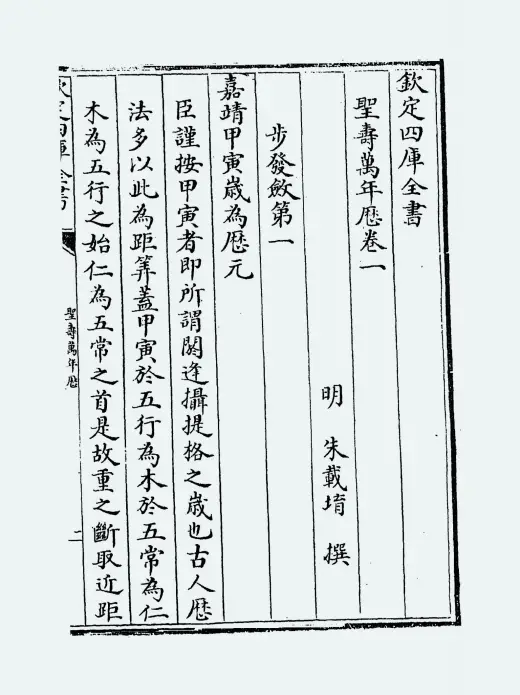 欽定四庫全書
聖壽萬年厯卷一
明 朱載堉 撰
步發斂第一
嘉靖甲寅歳為厯元
臣謹按甲寅者即所謂閼逢攝提格之歳也古人厯
法多以此為距筭蓋甲寅於五行為木於五常為仁
木為五行之始仁為五常之首是故重之斷取近距
欽定四庫全書
聖壽萬年厯
二